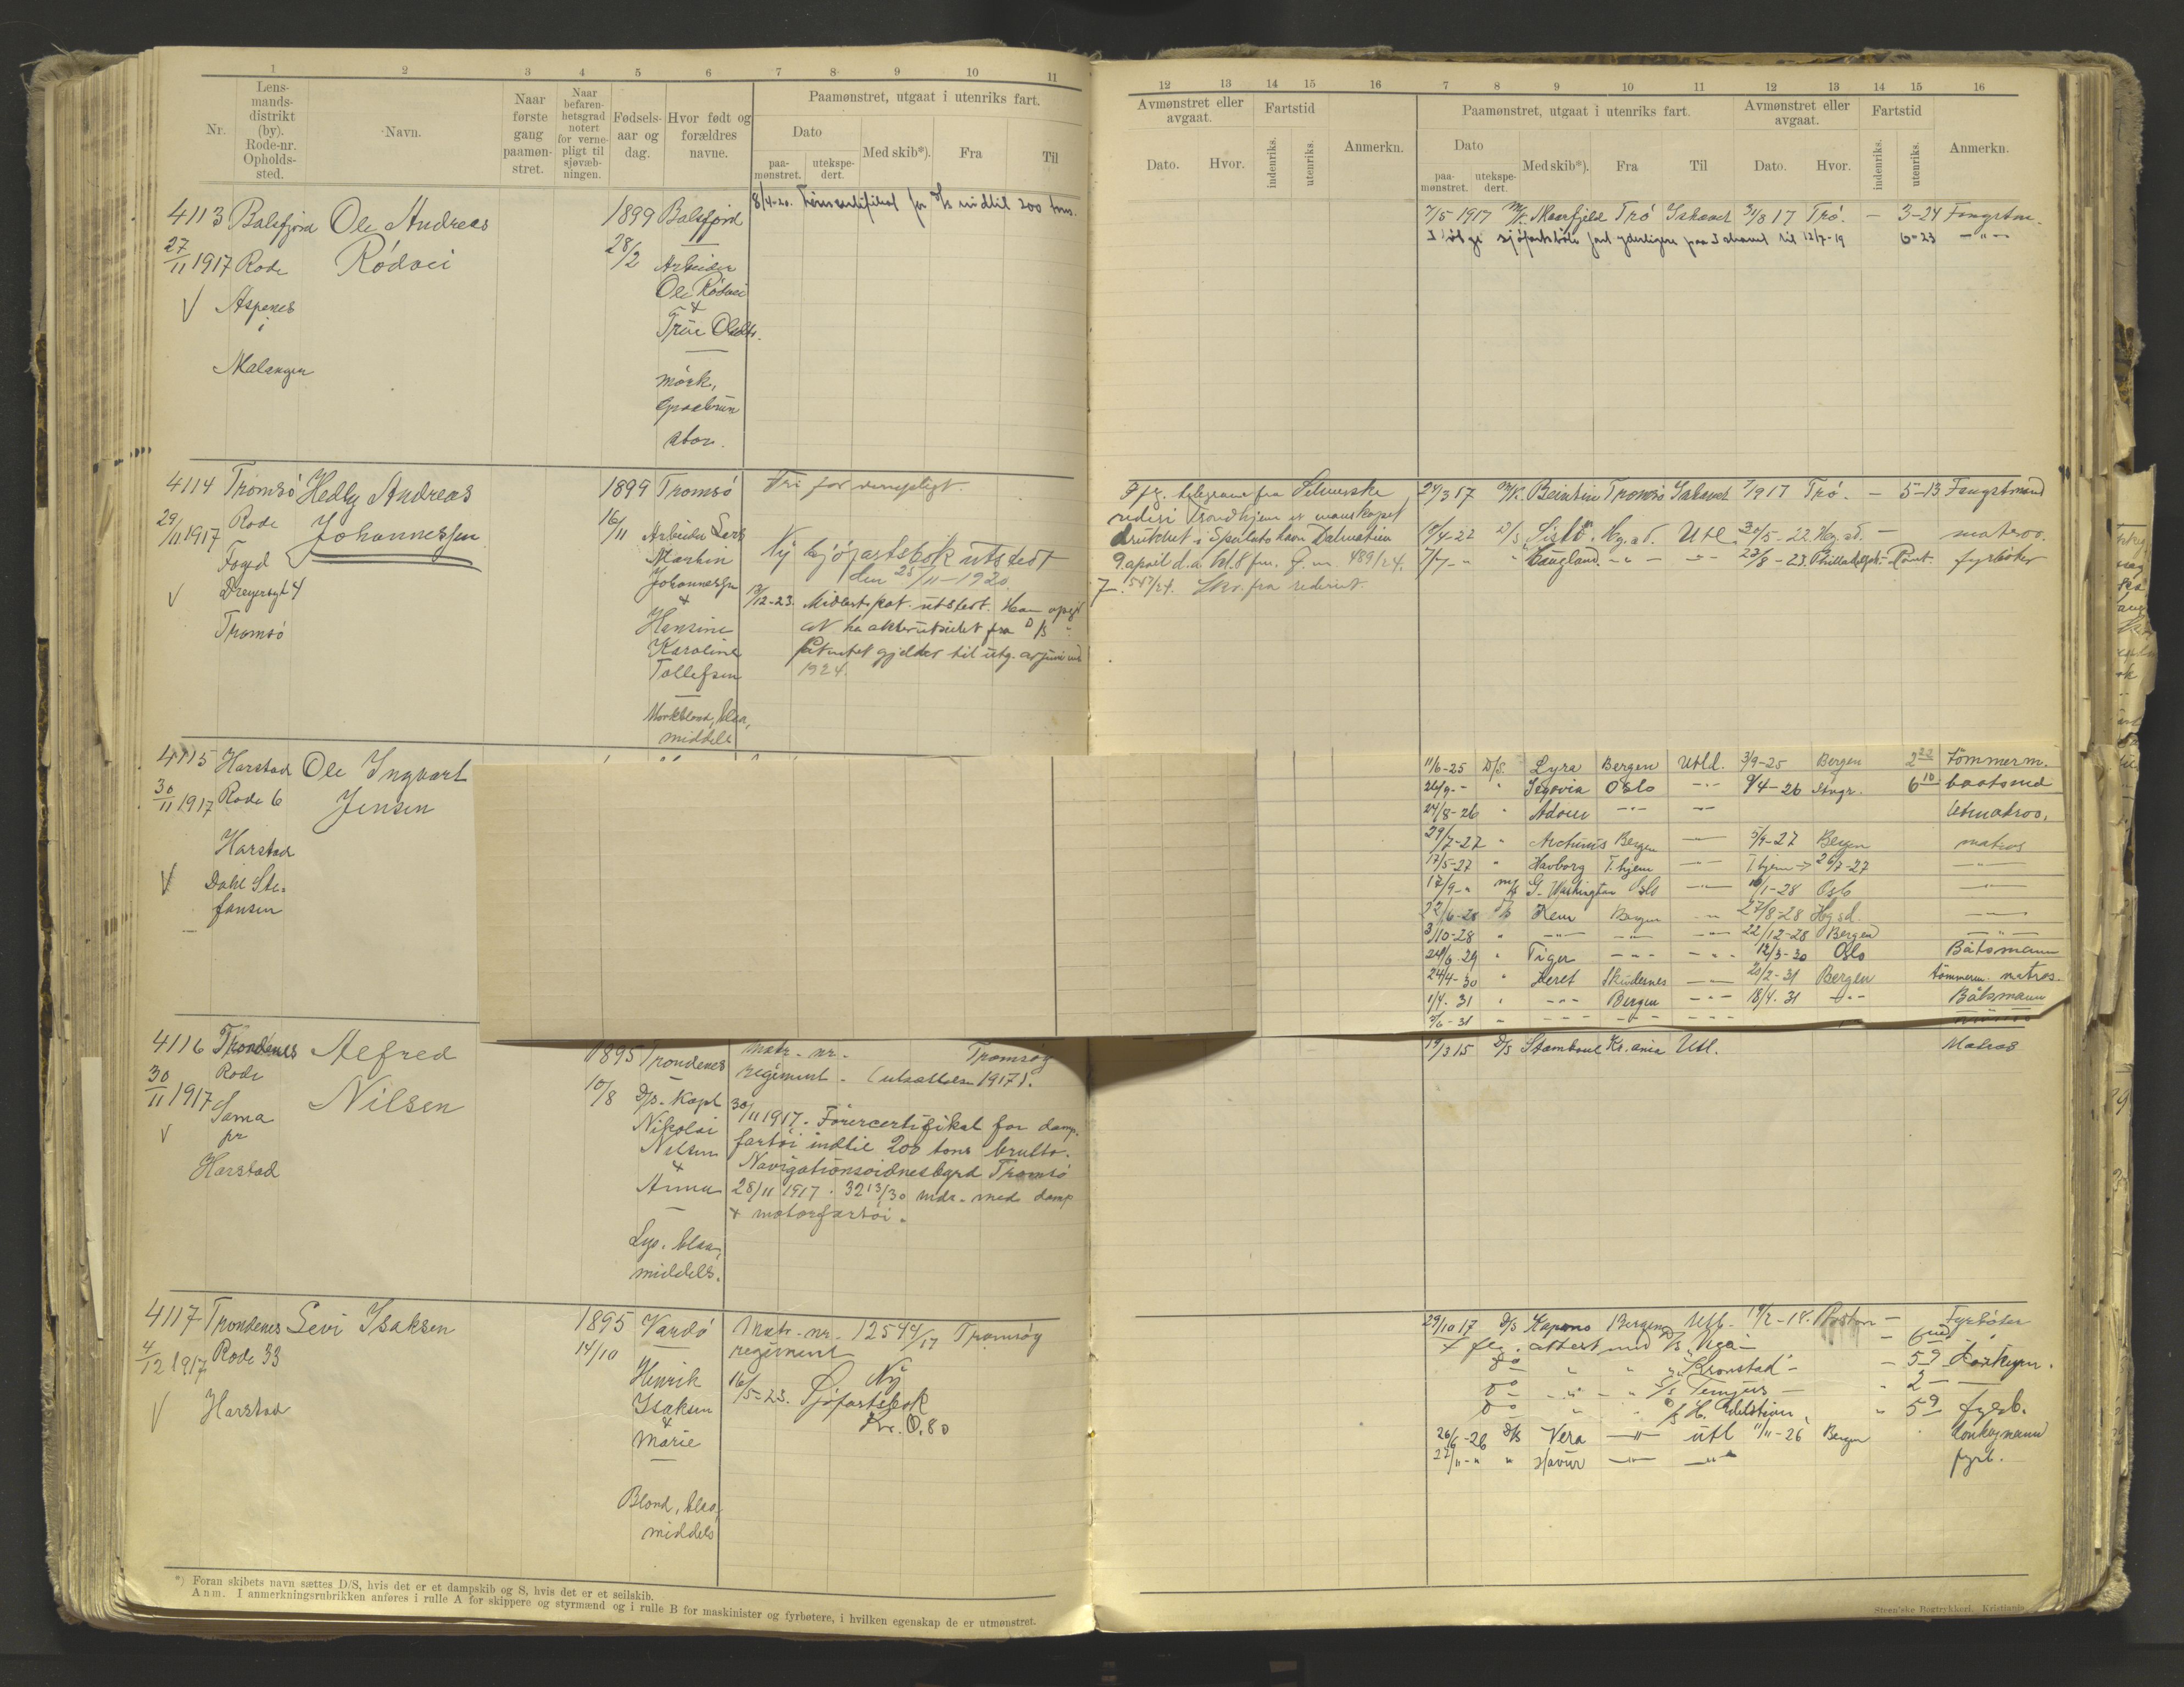 1 2 3 4 5 6 7 8 9 10 11
Nr.
Lens-
mands-
distrikt
(by).
Rode-nr.
Opholds-
sted.
Navn.
Naar
første
gang
paamøn-
stret.
Naar
befaren-
hetsgrad
notert
for verne-
pligt til
sjøvæb-
ningen.
Fødsels-
aar og
dag.
Hvor født og
forældres
navne.
Paamønstret, utgaat i utenriks fart.
Dato
paa-
mønstret.
utekspe-
dert.
Med skib*).
Fra
Til
4113 Balsfjord Ole Andreas 1899 Balsfjord
27/11 1917 Rode Rödvei 28/2
Aspenes
i
Malangen
Arbeider
Ole Rödvei
&
Trüe Olsdtr.
mörk,
graabrun
stor.
8/4-20. Förercertifikat for D/S indtil 200 tons.
4114 Tromsö Hedly Andreas 1899 Tromsö Fri for vernepligt.
29/11 1917 Rode Johannessen 16/11
Fogd
Dreyersgt 4
Tromsö
Arbeider
Martin
Johannessen
&
Hansine
Karoline
Tollefsen
Mörkblond, blaa,
middels
Ny sjöfartsbok utstedt
den 25/11-1920.
13/12-23. Midlert. pat. utstedt. Han opgir
at ha akterutseilet fra D/S
Patentet gjelder til utg. av juni md
1924.
4115 Harstad Ole Ingvart
30/11 1917 Rode 6 Jensen
Harstad
Dahl Ste-
fansen
4116 Trondenes Alfred 1895 Trondenes
30/11 1917 Rode Nilsen 10/8
Sama
pr
Harstad
D/S. Kapt
Nikolai
Nilsen
&
Anna
Lys, blaa,
middels.
Matr-nr- Tromsøy
regiment - (utsættelse 1917).
30/11 1917. Förercertifikat for damp-
fartöi indtil 200 tons brutto.
Navigationsvidnesbyrd Tromsö
28/11 1917. 32 13/30 mdr. med damp
& motorfartöi.
4117 Trondenes Levi Isaksen 1895 Vardö
4/12 1917 Rode 33 14/10
Harstad
Henrik
Isaksen
&
Marie
Blond, blaa,
middels
Matr-nr- 12544/17 Tromsöy
regiment
16/5-23. Ny
Sjöfartsbok
Kr. 0,80
*) Foran skibets navn sættes D/S, hvis det er et dampskib og S, hvis det er et seilskib.
Anm. I anmerkningsrubrikken anføres i rulle A for skippere og styrmænd og i rulle B for maskinister og fyrbøtere, i hvilken egenskap de er utmønstret.
12 13 14 15 16 7 8 9 10 11 12 13 14 15 16
Avmønstret eller
avgaat.
Dato.
Hvor.
Fartstid
indenriks.
utenriks.
Anmerkn.
Paamønstret, utgaat i utenriks fart.
Dato
paa-
mønstret.
utekspe-
dert.
Med skib*).
Fra
Til
Avmønstret eller
avgaat.
Dato.
Hvor.
Fartstid
indenriks.
utenriks.
Anmerkn.
7/5 1917 M/K. Maarfjeld Trö Ishavet 31/8 17 Trö. - 3-24 Fangstm.
sjöfartsbok fart yderligere paa Ishavet til 12/7-19 6-23 -"-
P flg. telegram fra Selmerske
rederi Trondhjem er mandskapet
druknet i Spalato havn Dalmatien
9 april d.a. kl. 8 fm. J. nr. 489/24.
547/24. Skr. fra rederiet.
24/3 17 M/K. Beintin Tromsö Ishavet 1/9 17 Trö. - 5-13 Fangstmand
18/4-22 D/S Sistö Hg.sd. Utl. 30/5-22. Hg.sd. - matros.
7/7-" " Haugland -"- -"- 23/8-23. fyrböter
11/6-25 D/S. Lyra Bergen Utld. 3/9-25 Bergen 2 22 tömmerm.
26/9-- " Segovia Oslo -"- 9/4-26 Stvgr. 6 10 baatsmd
24/8-26 " Adour -"- -"- letmatros.
29/7-27 " Arcturus Bergen -"- 5/9-27 Bergen matros
17/5-27 " Havborg T.hjem -"- T.hjem -> 26/7-27 -"-
17/9-" M/S G. Washington Oslo -"- 10/1-28 Oslo -"-
22/6-28 D/S Kem Bergen -"- 27/8-28 Hgsd. -"-
3/10-28 " -"- -"- -"- 22/12-28 Bergen -"-
24/6-29 " Tiger -"- -"- 12/3-30 Oslo Båtsmann
24/4-30 " Leret Skudesnes -"- 20/2-31 Bergen tömmerm. matros.
1/4.31 " -"- Bergen -"- 18/4.31 -"- Båtsmann
2/6-31 " -"- -"- -"-
19/3 15 D/S Stamboul Kr.ania Utl. Matros
29/10 17 D/S Kapana Bergen Utl. 19/2-18. Boston - Fyrböter
flg. attest med D/S Vega - 6
do " " " Kronstad - - 5 9 donkeym.
do - " - " S/S Tempus - " 2 -
do " " D/S " 5 9 fyrb.
26/6-26 D/S Vera -"- utl 11/11-26 Bergen donkeymann
22/11-" " Havur -"- -"- fyrb.
Steen'ske Bogtrykkeri, Kristiania